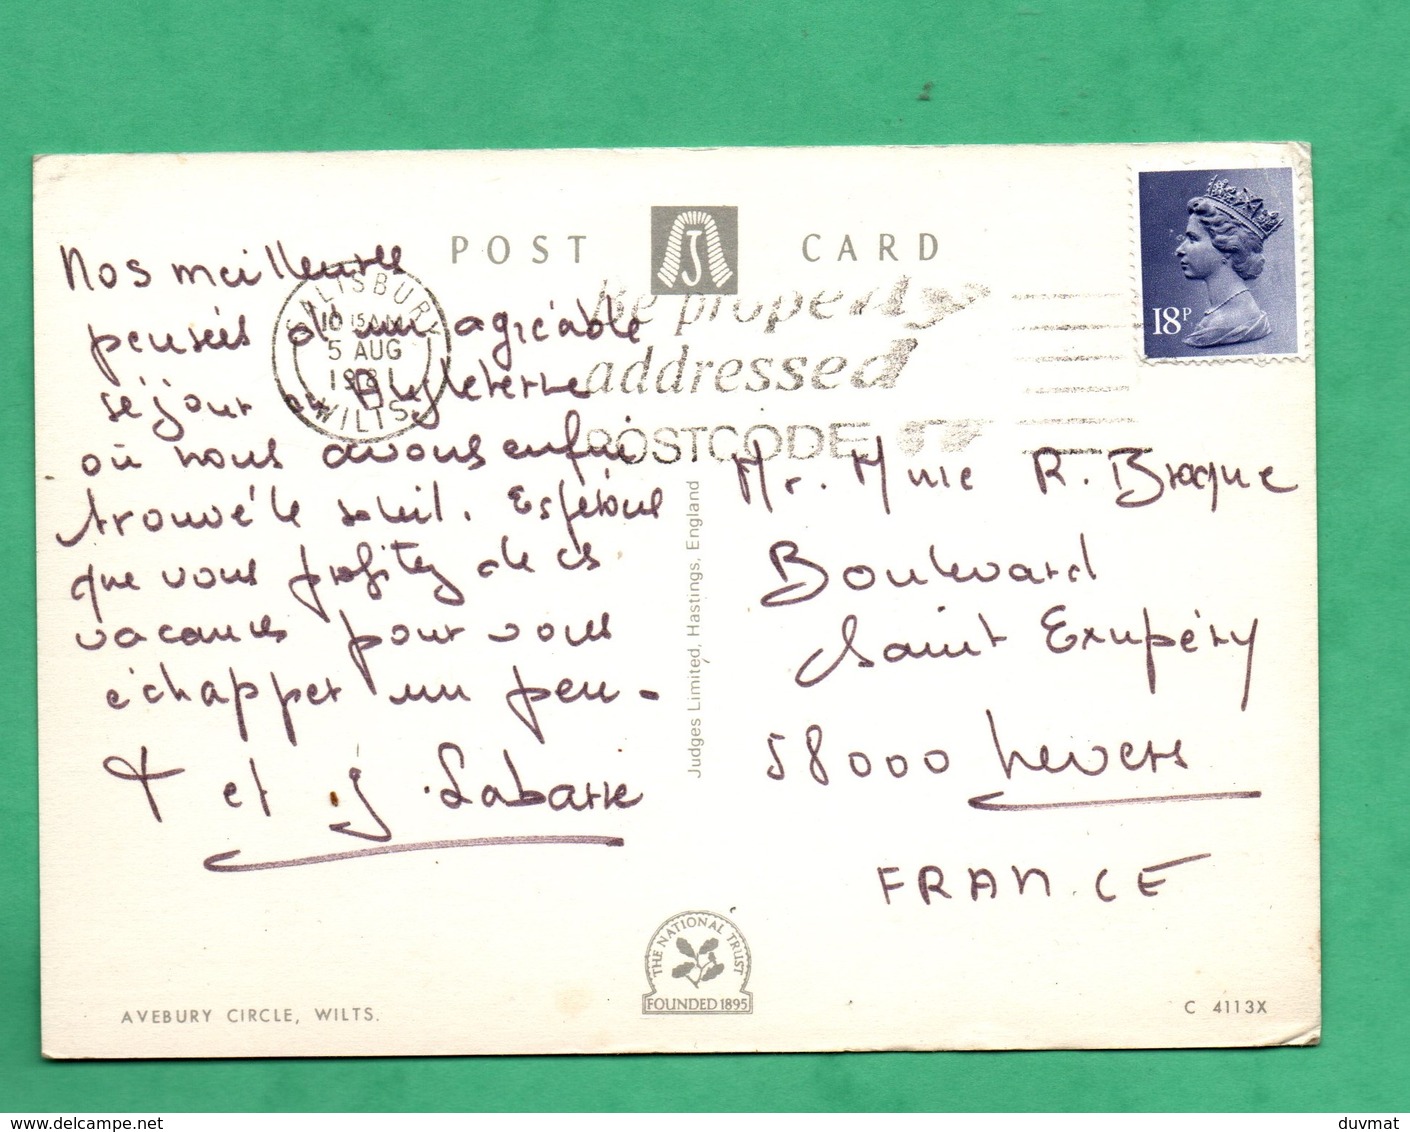 POST CARD
J
18P
SALISBURY
10 15 AM
5 AUG
1981
WILTS.
Be properly
addressed
POSTCODE
Nos meilleures
pensées d'un agréable
séjour en Angleterre
où nous avons enfin
trouvé le soleil. Espérons
que vous profitez de ces
vacances pour vous
échapper un peu-
et J Labarre
Mr. Mme R. Braque
Boulevard
Saint Exupéry
58000 Nevers
FRANCE
Judges Limited, Hastings, England
THE NATIONAL TRUST
FOUNDED 1895
AVEBURY CIRCLE, WILTS.
C 4113X
www.delcampe.net
duvmat